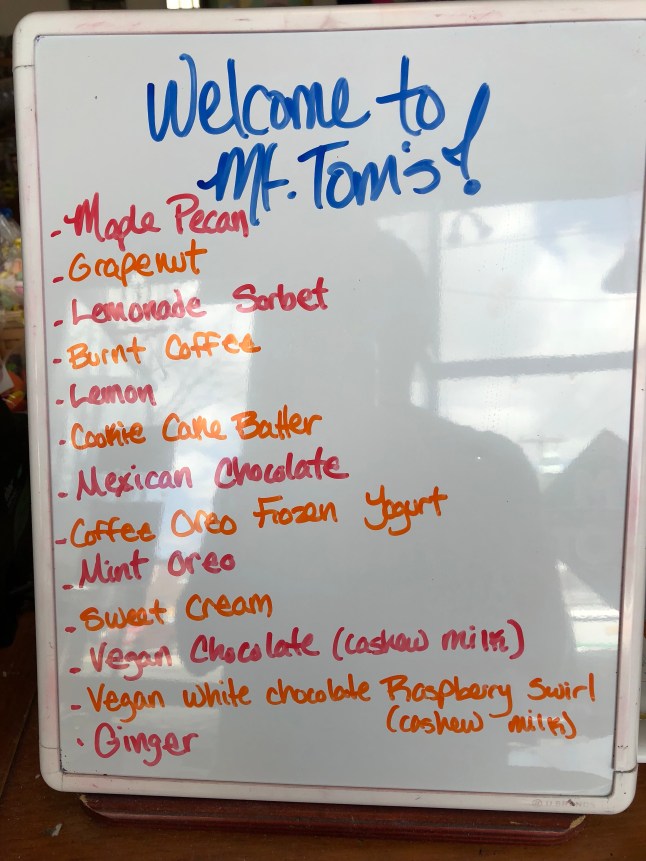 Welcome to
Mt. Tom's!
- Maple Pecan
- Grapenut
- Lemonade Sorbet
- Burnt Coffee
- Lemon
- Cookie Cake Batter
- Mexican Chocolate
- Coffee Oreo Frozen Yogurt
- Mint Oreo
- Sweet Cream
- Vegan Chocolate (cashew milk)
- Vegan white chocolate Raspberry Swirl
(cashew milk)
- Ginger